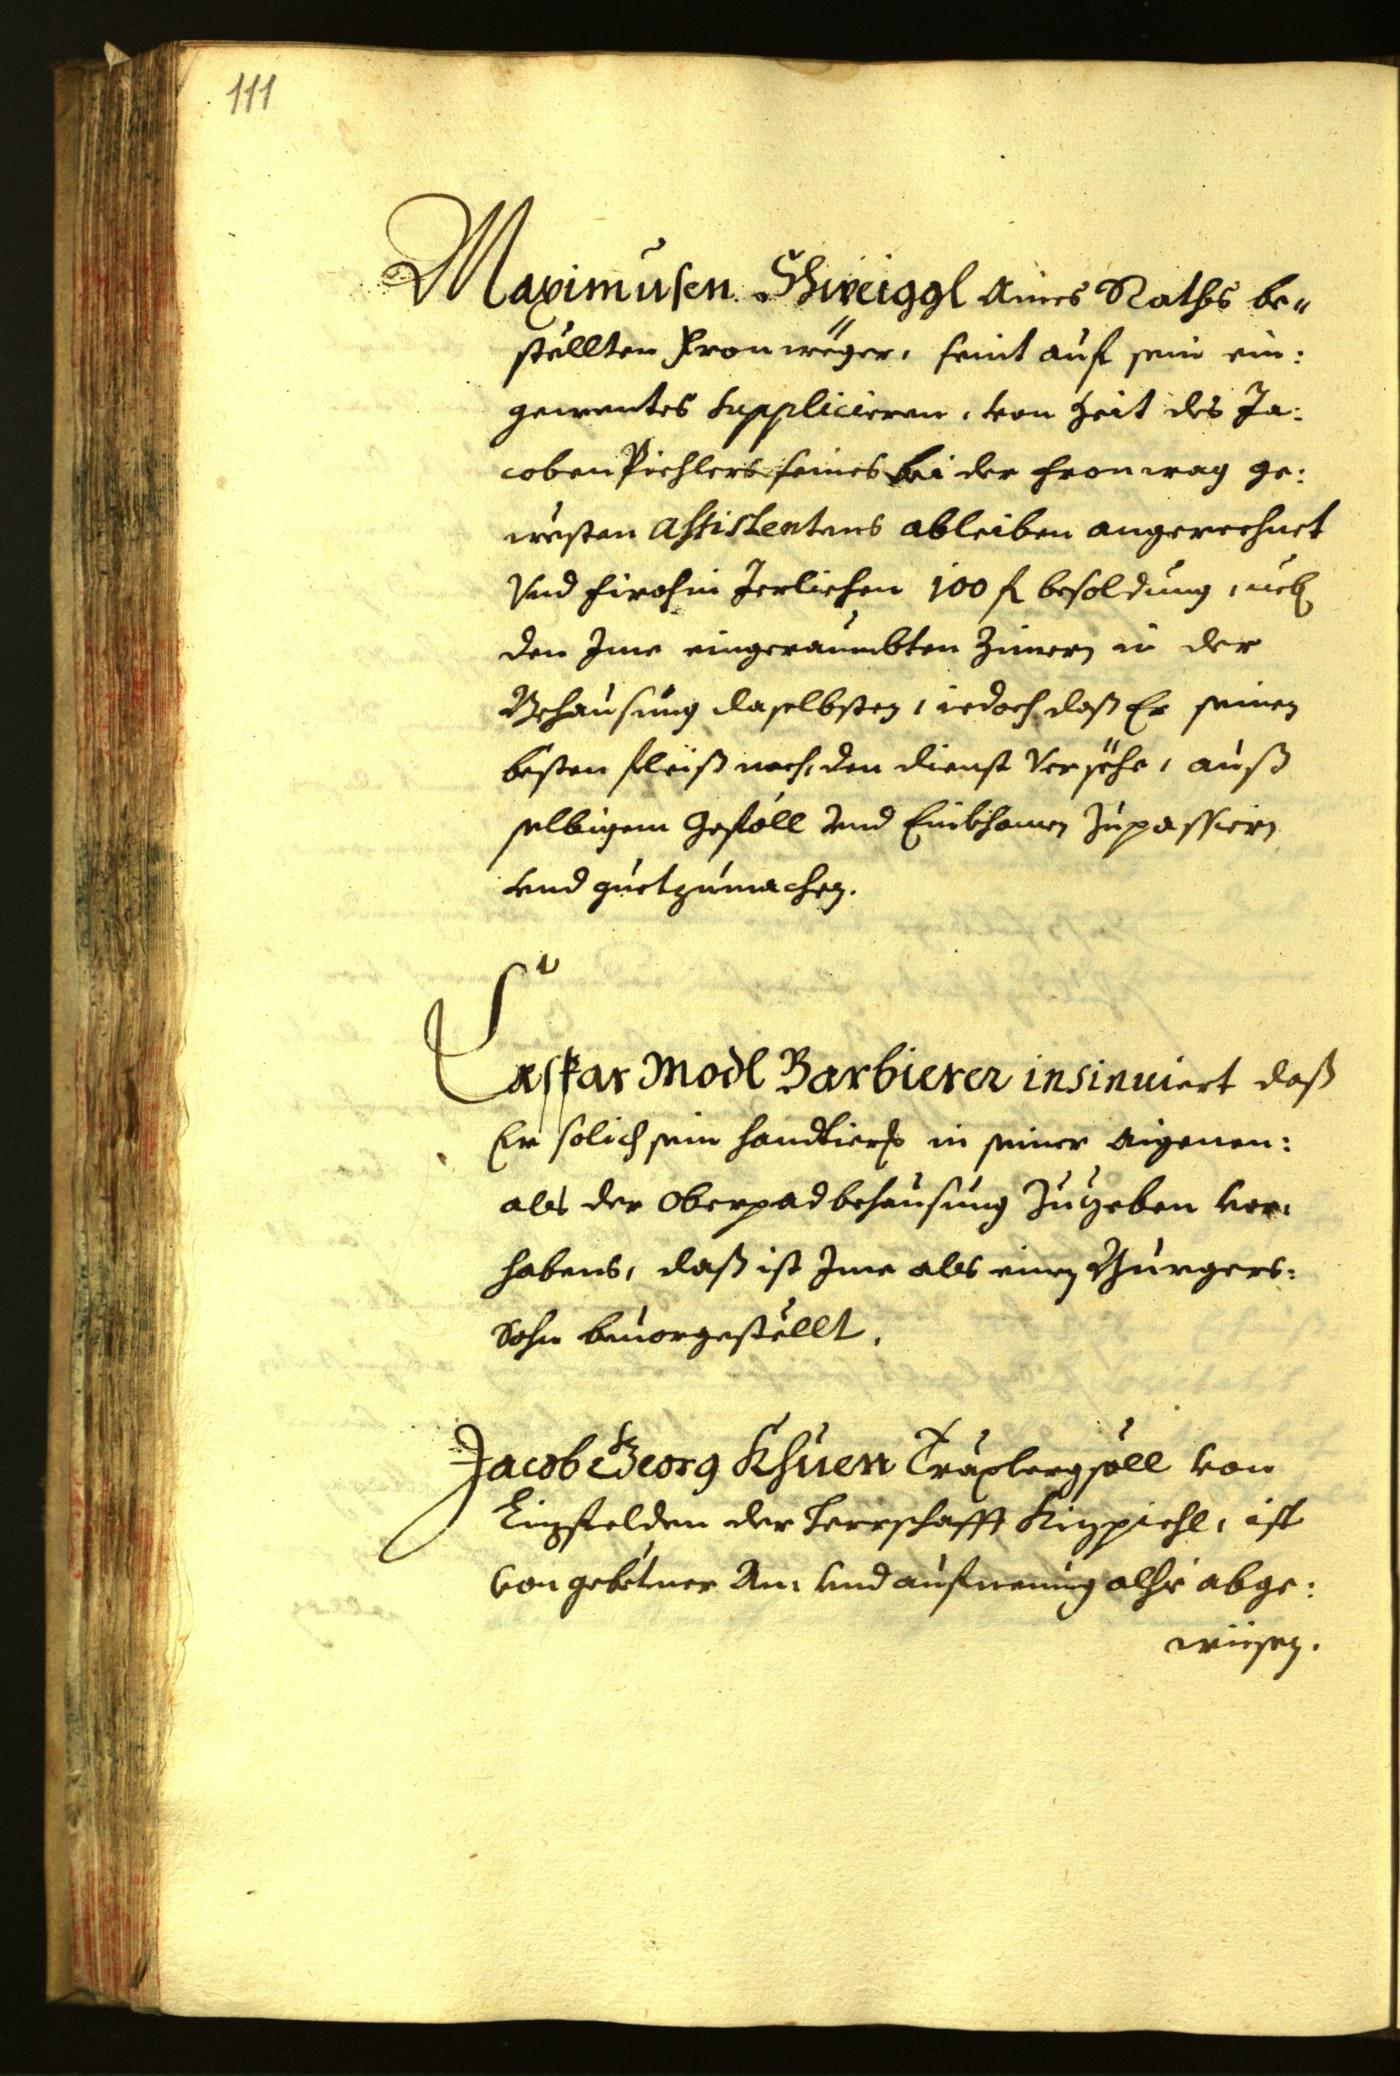 111
Maximusen Schweiggl Aines Raths be„
stöllten Fronwöger, seint auf sein ein:
gewentes Supplicieren, von Zeit des Ja:
coben Pichlers seines bei der Fronwag ge:
wösten Assistentens ableiben angerechnet
Vnd firohin Jerlichen 100 fl besoldung, neb
den Ime eingeraumbten Zimern in der
Behausung daselbsten, iedoch daß Er seinen
besten fleiß nach, den dienst versöhe, auß
selbigem Gestöll vnd Einkhomen zupassiern
vnd guetzumachen.
Caspar Modl Barbierer insinuiert daß
Er solich sein handtierg in seiner Aigenen:
als der Oberpadbehausung zutreiben vor,
habens, daß ist Ime als einen Burgers:
Sohn beuorgestöllt.
Jacob Georg Khuen Träxlergsöll von
der Herrschafft Kizpichl, ist
von gebetner An: vnd aufnemung alhie abge:
wisen.